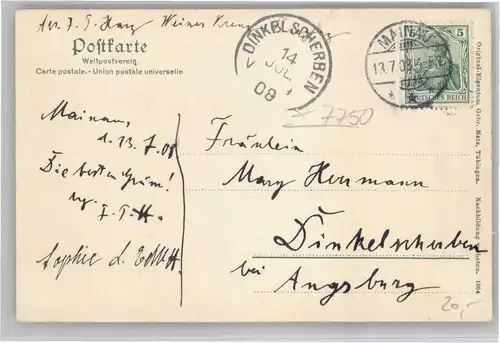 Postkarte
Weltpostverein
Carte postale.-Union postale universelle
DINKELSCHERBEN
14
JUL
08
MAINAU
13.7.08
5
DEUTSCHES REICH
7750
Mainau,
d. 13. 7. 08
Fräulein
Mary Herrmann
Dinkelscherben
bei
Augsburg
Die besten Grüße!
Sophie
20,-
Original-Eigentum Gebr. Metz, Tübingen.
Nachbildung verboten. 1904